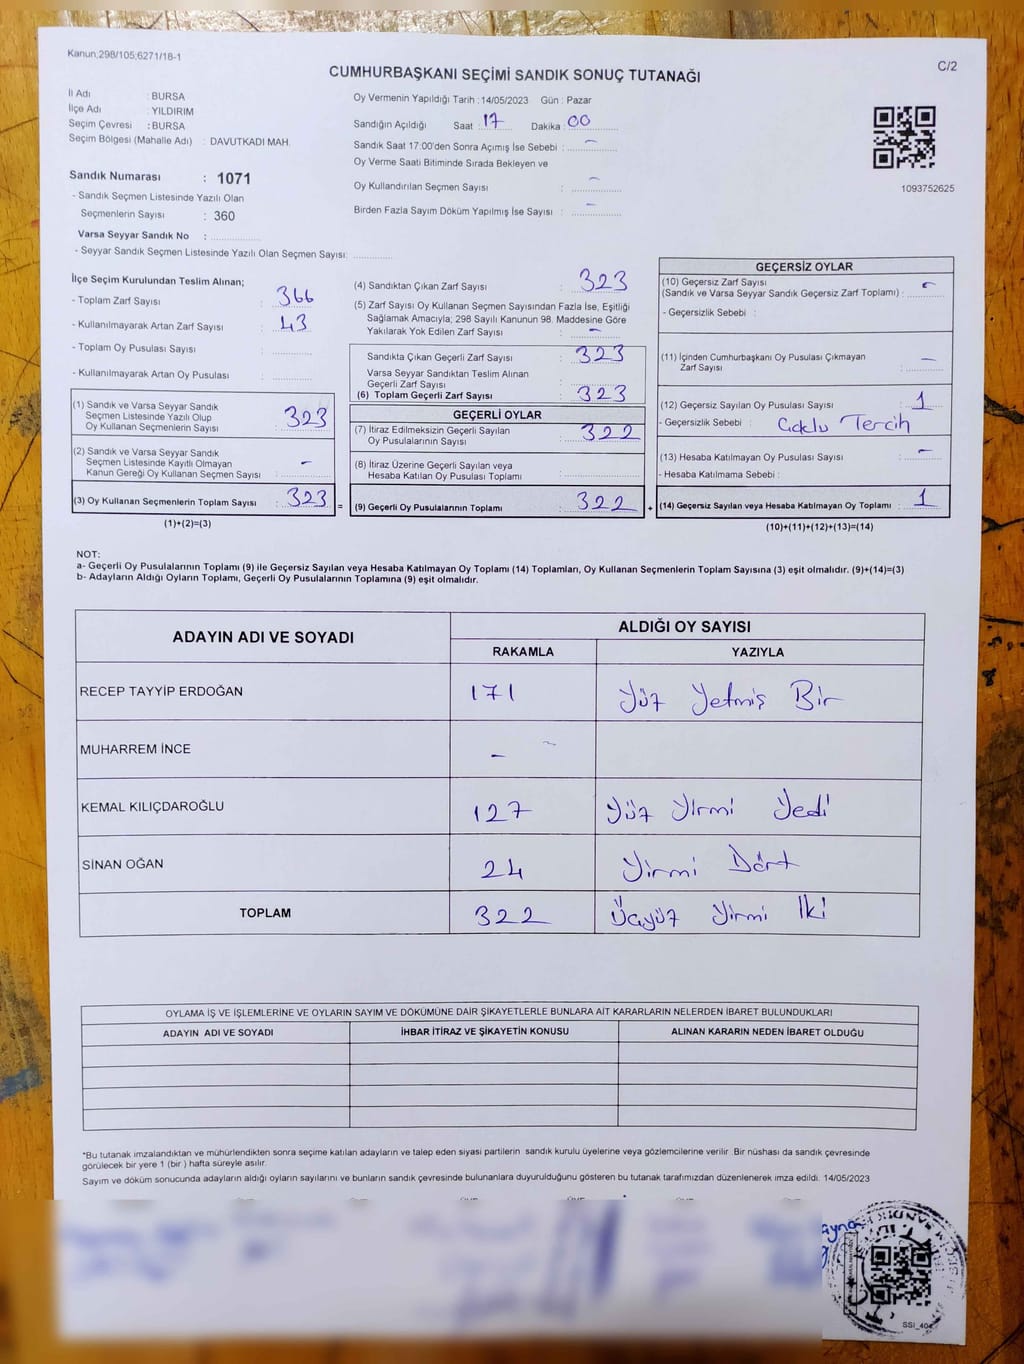 Kanun;298/105;6271/18-1
C/2
CUMHURBAŞKANI SEÇİMİ SANDIK SONUÇ TUTANAĞI
İl Adı : BURSA
İlçe Adı : YILDIRIM
Seçim Çevresi : BURSA
Seçim Bölgesi (Mahalle Adı) : DAVUTKADI MAH.
Sandık Numarası : 1071
- Sandık Seçmen Listesinde Yazılı Olan
Seçmenlerin Sayısı : 360
Varsa Seyyar Sandık No :
- Seyyar Sandık Seçmen Listesinde Yazılı Olan Seçmen Sayısı:
Oy Vermenin Yapıldığı Tarih : 14/05/2023 Gün : Pazar
Sandığın Açıldığı Saat : 17 Dakika : 00
Sandık Saat 17:00'den Sonra Açımış İse Sebebi : -
Oy Verme Saati Bitiminde Sırada Bekleyen ve
Oy Kullandırılan Seçmen Sayısı : -
Birden Fazla Sayım Döküm Yapılmış İse Sayısı : -
1093752625
İlçe Seçim Kurulundan Teslim Alınan;
- Toplam Zarf Sayısı : 366
- Kullanılmayarak Artan Zarf Sayısı : 43
- Toplam Oy Pusulası Sayısı :
- Kullanılmayarak Artan Oy Pusulası :
(1) Sandık ve Varsa Seyyar Sandık
Seçmen Listesinde Yazılı Olup
Oy Kullanan Seçmenlerin Sayısı : 323
(2) Sandık ve Varsa Seyyar Sandık
Seçmen Listesinde Kayıtlı Olmayan
Kanun Gereği Oy Kullanan Seçmen Sayısı : -
(3) Oy Kullanan Seçmenlerin Toplam Sayısı : 323 =
(1)+(2)=(3)
(4) Sandıktan Çıkan Zarf Sayısı : 323
(5) Zarf Sayısı Oy Kullanan Seçmen Sayısından Fazla İse, Eşitliği
Sağlamak Amacıyla; 298 Sayılı Kanunun 98. Maddesine Göre
Yakılarak Yok Edilen Zarf Sayısı : -
Sandıkta Çıkan Geçerli Zarf Sayısı : 323
Varsa Seyyar Sandıktan Teslim Alınan
Geçerli Zarf Sayısı :
(6) Toplam Geçerli Zarf Sayısı : 323
GEÇERLİ OYLAR
(7) İtiraz Edilmeksizin Geçerli Sayılan
Oy Pusulalarının Sayısı : 322
(8) İtiraz Üzerine Geçerli Sayılan veya
Hesaba Katılan Oy Pusulası Toplamı :
(9) Geçerli Oy Pusulalarının Toplamı : 322 +
GEÇERSİZ OYLAR
(10) Geçersiz Zarf Sayısı
(Sandık ve Varsa Seyyar Sandık Geçersiz Zarf Toplamı) : -
- Geçersizlik Sebebi :
(11) İçinden Cumhurbaşkanı Oy Pusulası Çıkmayan
Zarf Sayısı : -
(12) Geçersiz Sayılan Oy Pusulası Sayısı : 1
- Geçersizlik Sebebi : Çoklu Tercih
(13) Hesaba Katılmayan Oy Pusulası Sayısı : -
- Hesaba Katılmama Sebebi :
(14) Geçersiz Sayılan veya Hesaba Katılmayan Oy Toplamı : 1
(10)+(11)+(12)+(13)=(14)
NOT:
a- Geçerli Oy Pusulalarının Toplamı (9) ile Geçersiz Sayılan veya Hesaba Katılmayan Oy Toplamı (14) Toplamları, Oy Kullanan Seçmenlerin Toplam Sayısına (3) eşit olmalıdır. (9)+(14)=(3)
b- Adayların Aldığı Oyların Toplamı, Geçerli Oy Pusulalarının Toplamına (9) eşit olmalıdır.
ADAYIN ADI VE SOYADI ALDIĞI OY SAYISI
RAKAMLA YAZIYLA
RECEP TAYYİP ERDOĞAN 171 Yüz Yetmiş Bir
MUHARREM İNCE -
KEMAL KILIÇDAROĞLU 127 Yüz Yirmi Yedi
SİNAN OĞAN 24 Yirmi Dört
TOPLAM 322 Üçyüz Yirmi İki
OYLAMA İŞ VE İŞLEMLERİNE VE OYLARIN SAYIM VE DÖKÜMÜNE DAİR ŞİKAYETLERLE BUNLARA AİT KARARLARIN NELERDEN İBARET BULUNDUKLARI
ADAYIN ADI VE SOYADI İHBAR İTİRAZ VE ŞİKAYETİN KONUSU ALINAN KARARIN NEDEN İBARET OLDUĞU
*Bu tutanak imzalandıktan ve mühürlendikten sonra seçime katılan adayların ve talep eden siyasi partilerin sandık kurulu üyelerine veya gözlemcilerine verilir .Bir nüshası da sandık çevresinde
görülecek bir yere 1 (bir ) hafta süreyle asılır.
Sayım ve döküm sonucunda adayların aldığı oyların sayılarını ve bunların sandık çevresinde bulunanlara duyurulduğunu gösteren bu tutanak tarafımızdan düzenlenerek imza edildi. 14/05/2023